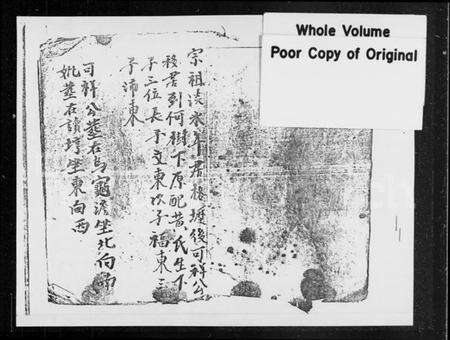 Whole Volume
Poor Copy of Original
宗祖淡水年居格堘後可祥公
移居到何樹下原配黃氏生下
子三位長子文東次子福東三
子沛東
可祥公葬在烏龜 坐北向南
妣葬在 坐東向西